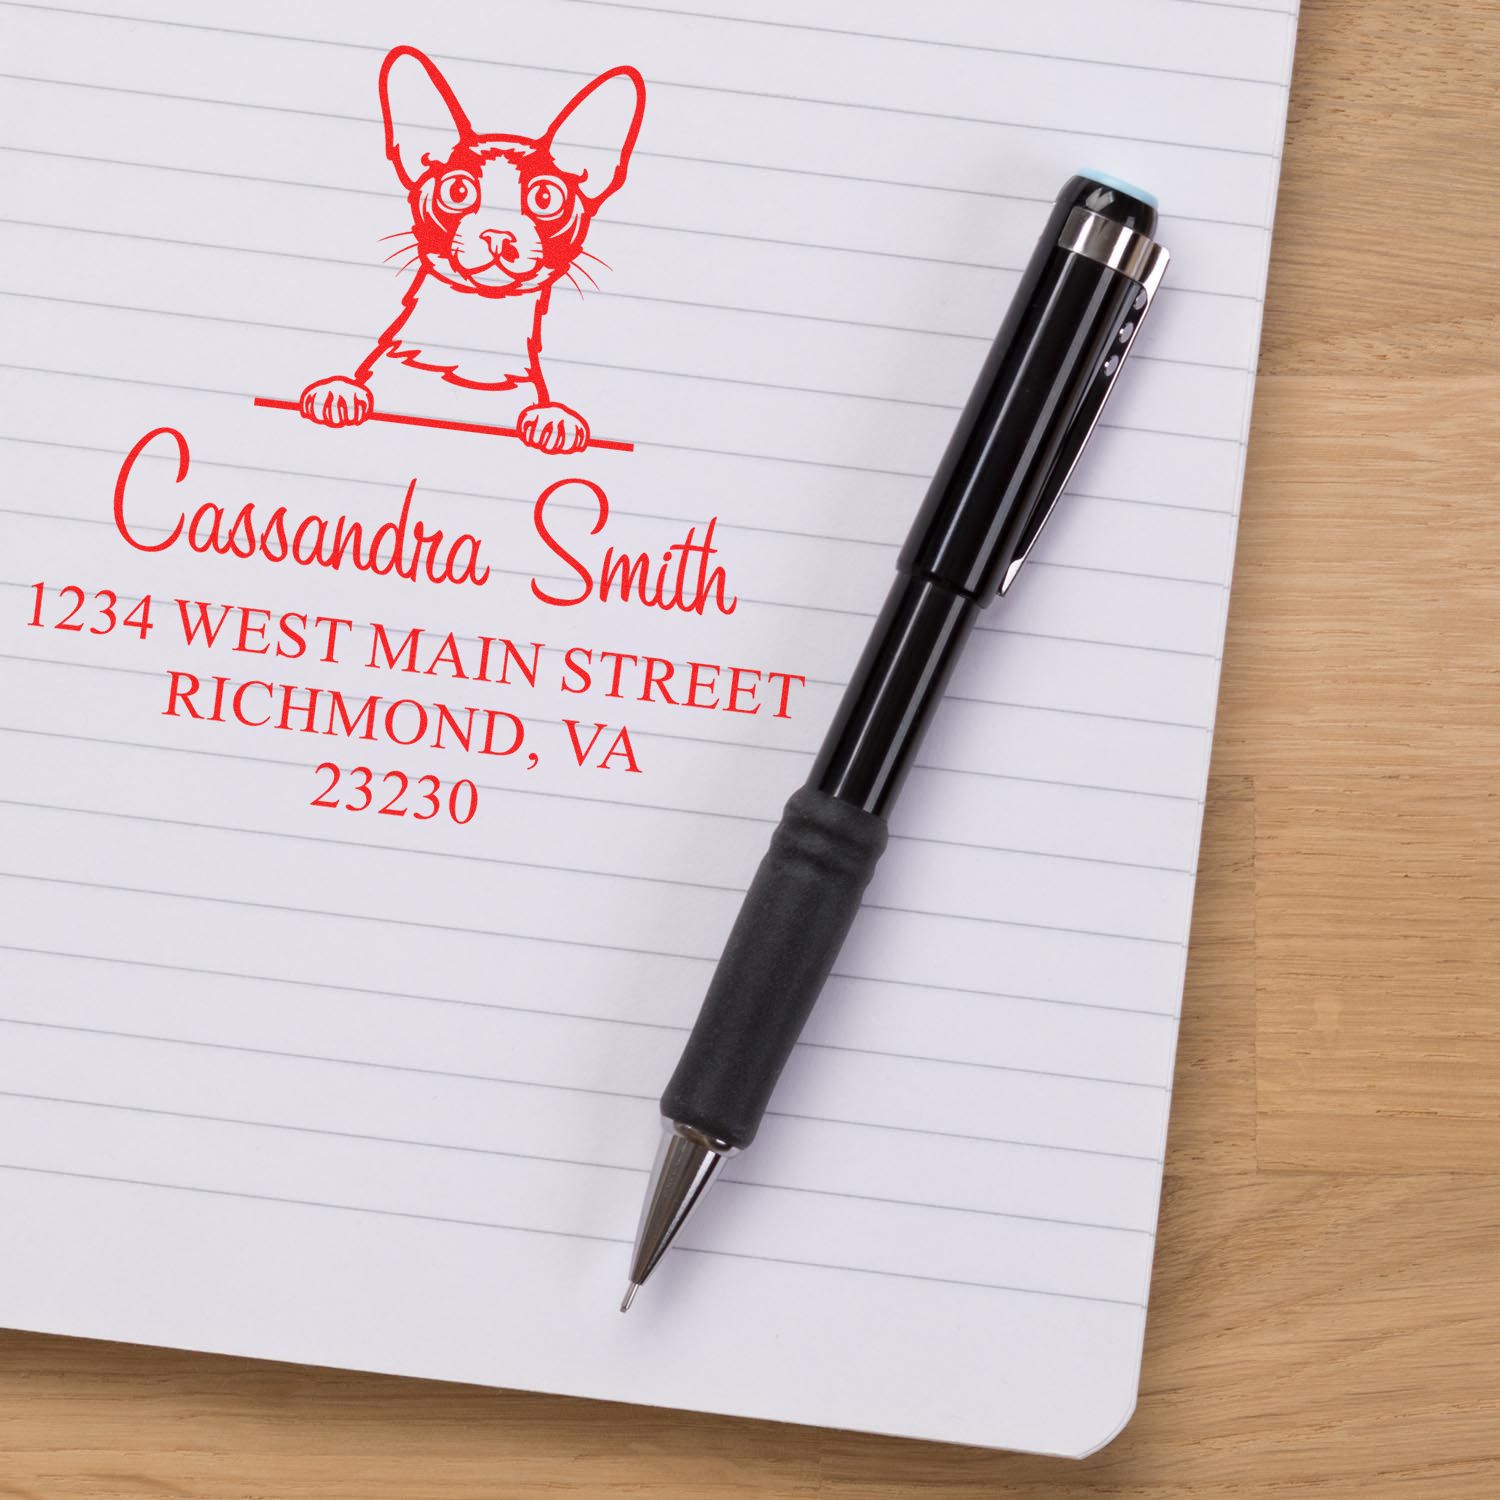 Cassandra Smith
1234 WEST MAIN STREET
RICHMOND, VA
23230